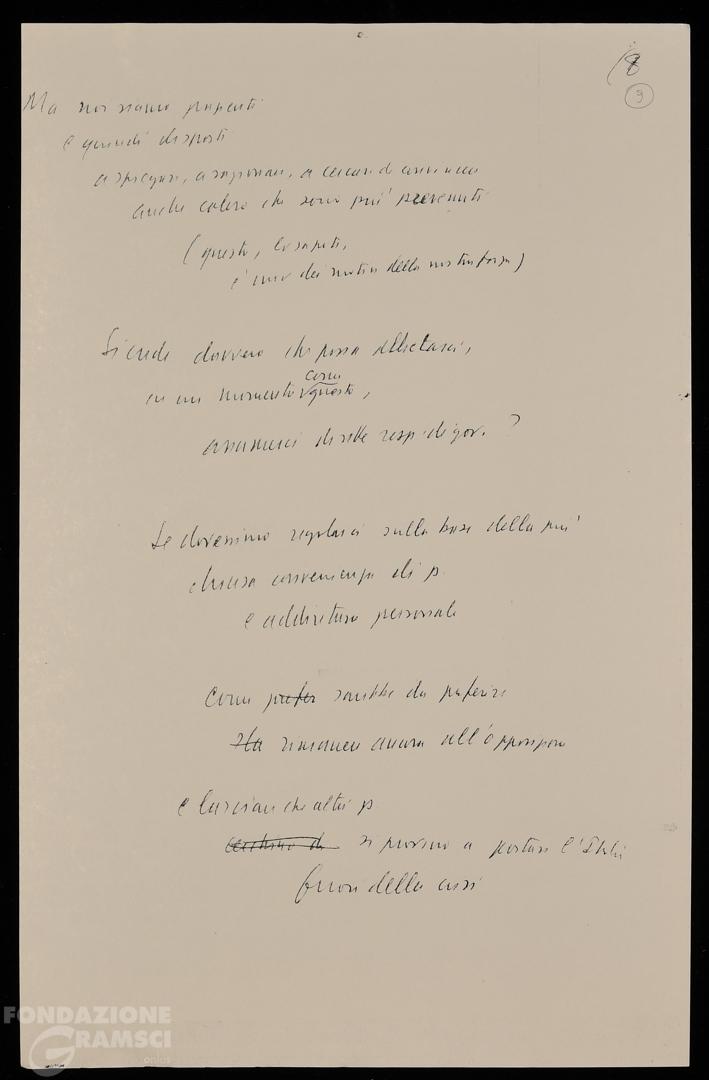 (8
9
Ma noi siamo pazienti
e quindi disposti
a spiegare, a ragionare, a cercare di convincere
anche coloro che sono più prevenuti
(questo, lo sapete,
è uno dei motivi della nostra forza)
Si crede davvero che possa allettarci,
in un momento come questo,
assumerci dirette resp. di gov. ?
Se dovessimo regolarci sulla base della più
chiusa convenienza di p.
e addirittura personale
Come prefer sarebbe da preferire
Sta rimanere ancora all'opposizione
e lasciare che altri p.
si provino a portare l'Italia
fuori della crisi
FONDAZIONE
GRAMSCI
onlus